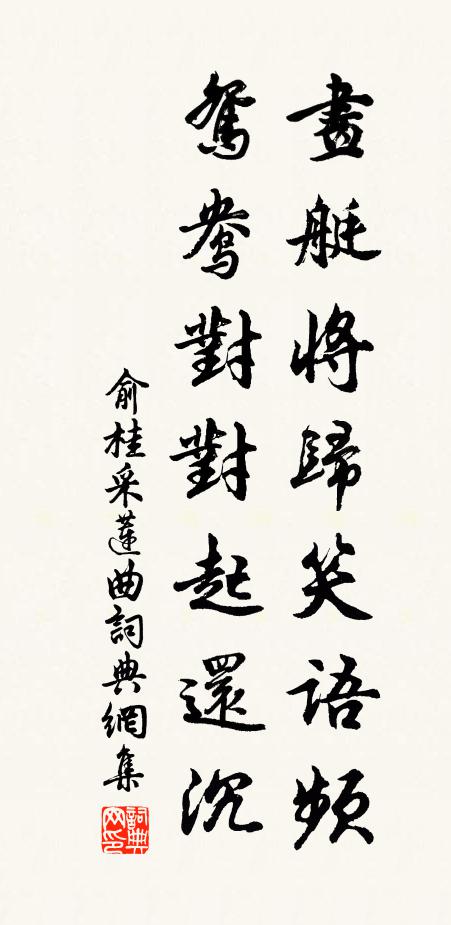 畫艇將歸笑語頻
鴛鴦對對起還沉
俞桂采蓮曲詞典網集
詞典
网印